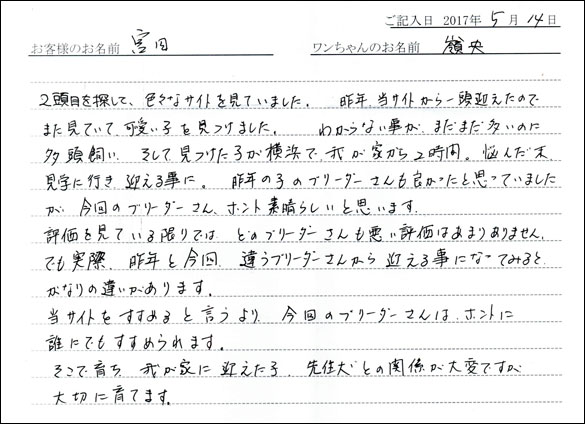 ご記入日 2017年 5月 14日
お客様のお名前 宮田 ワンちゃんのお名前 嶺央
2頭目を探して、色々なサイトを見ていました。 昨年、当サイトから一頭迎えたので
また見ていて、可愛い子を見つけました。 わからない事が、まだまだ多いのに
多頭飼い、そして見つけた子が横浜で、我が家から2時間。悩んだ末
見学に行き、迎える事に。 昨年の子のブリーダーさんも良かったと思っていました
が、今回のブリーダーさん、ホント素晴らしいと思います。
評価を見ている限りでは、どのブリーダーさんも悪い評価はあまりありません。
でも実際、昨年と今回、違うブリーダーさんから迎える事になってみると
かなりの違いがあります。
当サイトをすすめると言うより、今回のブリーダーさんは、ホントに
誰にでもすすめられます。
そこで育ち、我が家に迎えた子、先住犬との関係が大変ですが
大切に育てます。